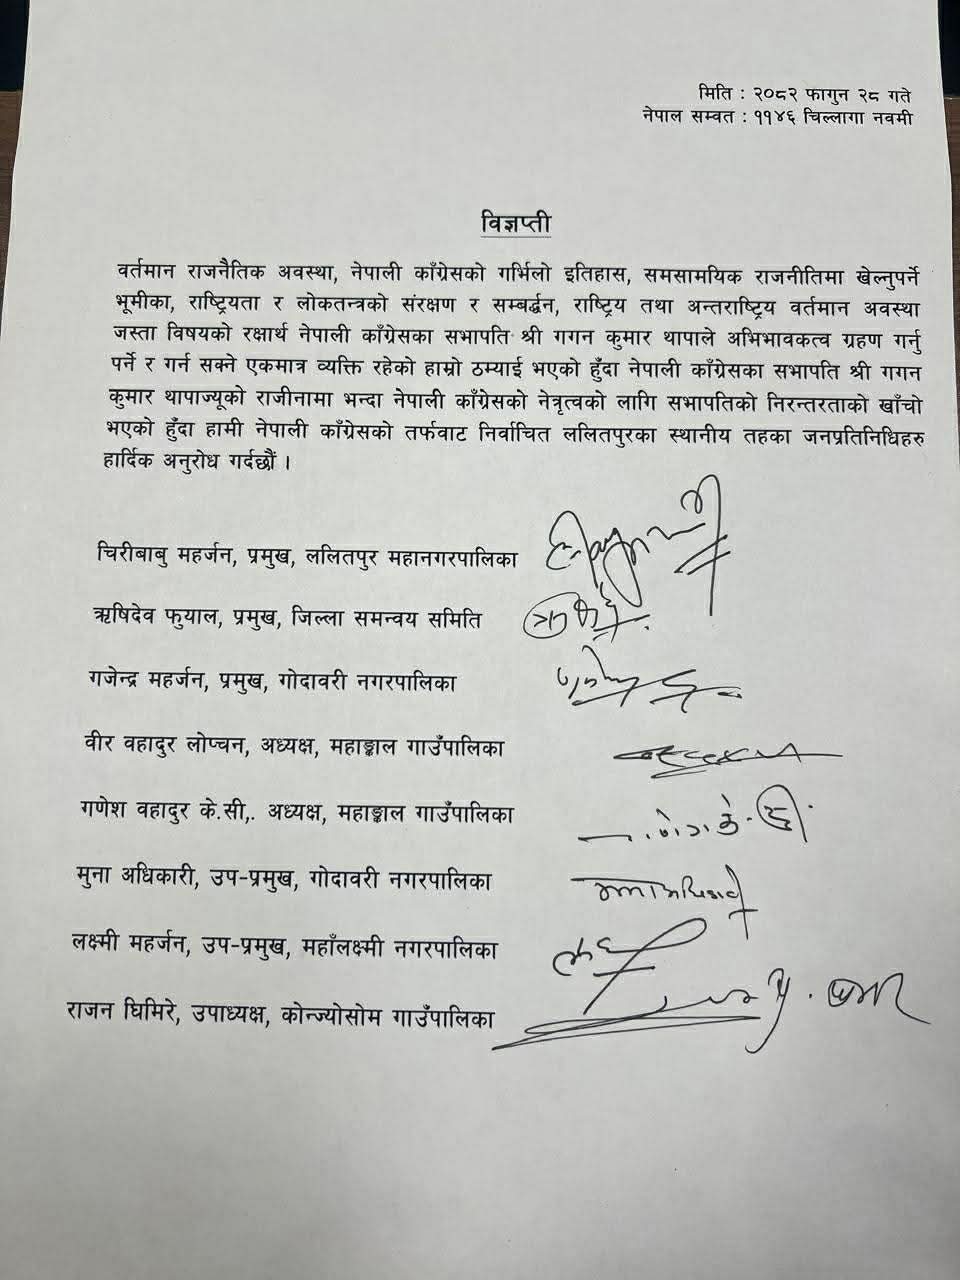 मिति : २०८२ फागुन २८ गते
नेपाल सम्वत : ११४६ चिल्लागा नवमी
विज्ञप्ती
वर्तमान राजनैतिक अवस्था, नेपाली काँग्रेसको गर्भिलो इतिहास, समसामयिक राजनीतिमा खेल्नुपर्ने
भूमीका, राष्ट्रियता र लोकतन्त्रको संरक्षण र सम्बर्द्धन, राष्ट्रिय तथा अन्तराष्ट्रिय वर्तमान अवस्था
जस्ता विषयको रक्षार्थ नेपाली काँग्रेसका सभापति श्री गगन कुमार थापाले अभिभावकत्व ग्रहण गर्नु
पर्ने र गर्न सक्ने एकमात्र व्यक्ति रहेको हाम्रो ठम्याई भएको हुँदा नेपाली काँग्रेसका सभापति श्री गगन
कुमार थापाज्यूको राजीनामा भन्दा नेपाली काँग्रेसको नेतृत्वको लागि सभापतिको निरन्तरताको खाँचो
भएको हुँदा हामी नेपाली काँग्रेसको तर्फवाट निर्वाचित ललितपुरका स्थानीय तहका जनप्रतिनिधिहरु
हार्दिक अनुरोध गर्दछौं ।
चिरीबाबु महर्जन, प्रमुख, ललितपुर महानगरपालिका
ऋषिदेव फुयाल, प्रमुख, जिल्ला समन्वय समिति
गजेन्द्र महर्जन, प्रमुख, गोदावरी नगरपालिका
वीर वहादुर लोप्चन, अध्यक्ष, महाङ्काल गाउँपालिका
गणेश वहादुर के.सी,. अध्यक्ष, महाङ्काल गाउँपालिका
मुना अधिकारी, उप-प्रमुख, गोदावरी नगरपालिका
लक्ष्मी महर्जन, उप-प्रमुख, महाँलक्ष्मी नगरपालिका
राजन घिमिरे, उपाध्यक्ष, कोन्ज्योसोम गाउँपालिका